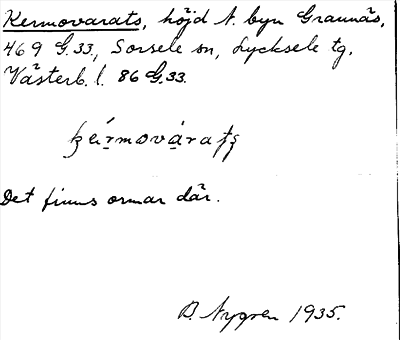 Kermovarats, höjd N. byn Grannäs,
469 G.33., Sorsele sn, Lycksele tg.
Västerb. l. 86 G.33.
Det finns ormar där.
B. Nygren 1935.